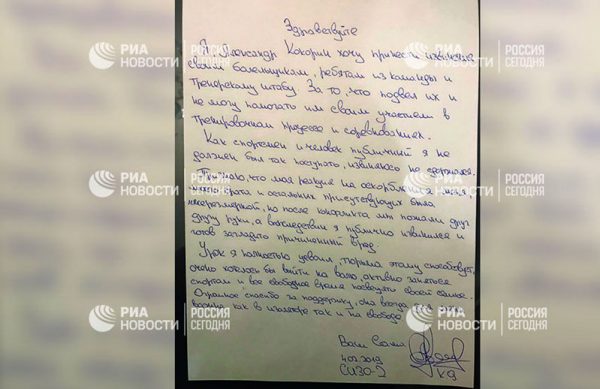 Здравствуйте
Я Александр Кокорин хочу принести извинения
своим болельщикам, ребятам из команды и
тренерскому штабу. За то, что подвел их и
не могу помогать им своим участием в
тренировочном процессе и соревнованиях.
Как спортсмен и человек публичный я не
должен был так поступать, извиняюсь не сдержался.
что моя реакция на оскорбления меня,
брата и остальных присутствующих была
но после конфликта мы пожали друг
другу руки, а впоследствии я публично извинился и
готов загладить причиненный вред.
Урок я полностью усвоил, тюрьма этому способствует,
очень хотелось бы выйти на волю, активно заняться
спортом и все свободное время посвящать своей семье.
Огромное спасибо за поддержку, она всегда
важна как в изоляторе так и на свободе
Ваш Саша
4.02.2019 К9
СИЗО-2
РИА НОВОСТИ
РОССИЯ СЕГОДНЯ
РИА НОВОСТИ
РОССИЯ СЕГОДНЯ
РИА НОВОСТИ
РОССИЯ СЕГОДНЯ